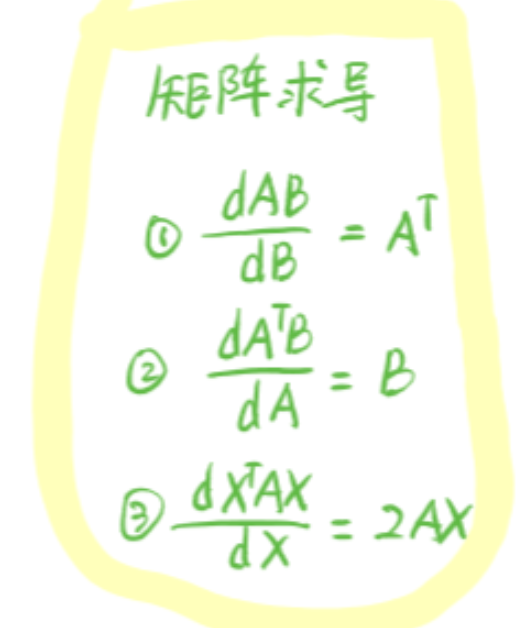 矩阵求导
① dAB/dB = Aᵀ
② dAᵀB/dA = B
③ dXᵀAX/dX = 2AX